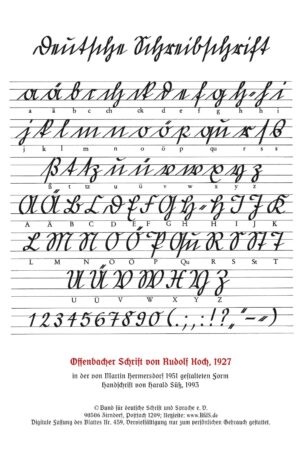 Deutsche Schreibschrift
a ä b c ch ck d e f g h - h i
a ä b c ch ck d e f g h h i
j k l m n o ö p qu r s s
j k l m n o ö p qu r s
ß t tz u ü v w x y z
ß t tz u ü v w x y z
A Ä B C D E F G H - H I J K
A Ä B C D E F G H H I J K
L M N O Ö P Qu R S St T
L M N O Ö P Qu R S St T
U Ü V W X Y Z
U Ü V W X Y Z
1 2 3 4 5 6 7 8 9 0 ( . ; , : ! ? „ “ – = )
Offenbacher Schrift von Rudolf Koch, 1927
in der von Martin Hermersdorf 1951 gestalteten Form
Handschrift von Harald Süß, 1993
© Bund für deutsche Schrift und Sprache e. V.
Digitale Fassung des Blattes Nr. 459, Vervielfältigung nur zum persönlichen Gebrauch gestattet.